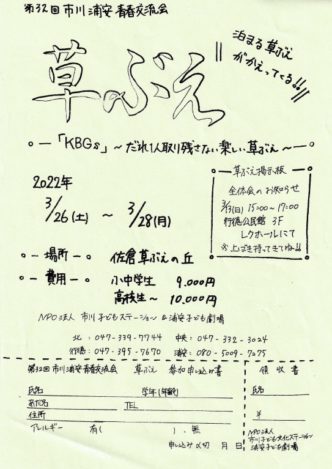 第32回 市川 浦安 青春交流会
泊まる草ぶえ
がかえってくる!!
草ぶえ
「KBGs」～だれ1人取り残さない楽しい草ぶえ～
2022年
3/26(土) ～ 3/28(月)
草ぶえ掲示板
全体会のお知らせ
15:00～17:00
行徳公民館 3F
レクホールにて
場所 佐倉草ぶえの丘
費用 小中学生 9.000円
高校生～ 10.000円
NPO法人 市川子どもステーション & 浦安子ども劇場
北: 047-339-7744 中央: 047-332-3024
行徳: 047-395-7670 浦安: 080-5009-7275
第32回 市川 浦安 青春交流会 草ぶえ 参加申し込み書
氏名 学年(年齢)
TEL
住所
アレルギー 有( )、無
申し込み〆切 月 日
領収書
氏名
¥
NPO法人
浦安子ども劇場